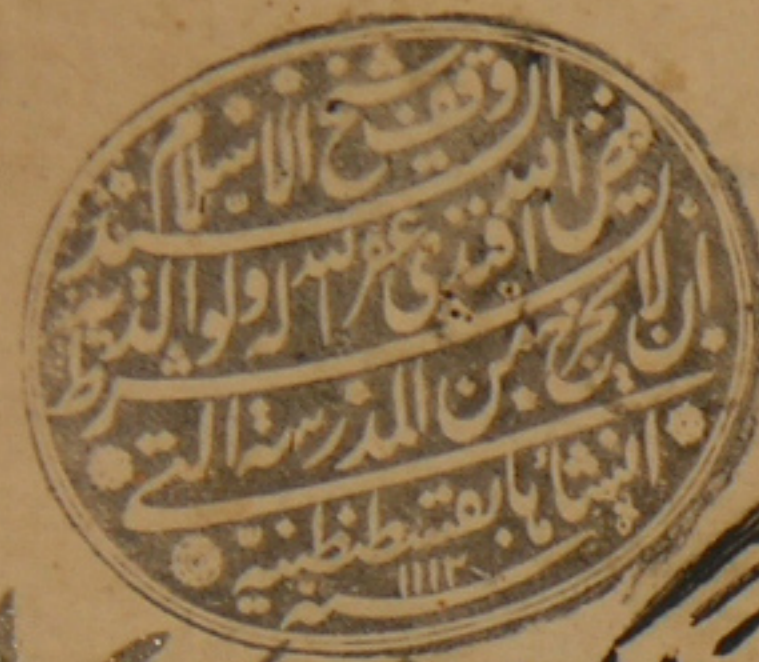 وقف شيخ الاسلام السيد
فيض الله افندى غفر الله له ولوالديه بشرط
أن لا يخرج من المدرسة التى
انشأها بقسطنطينية
سنه ١١١٢